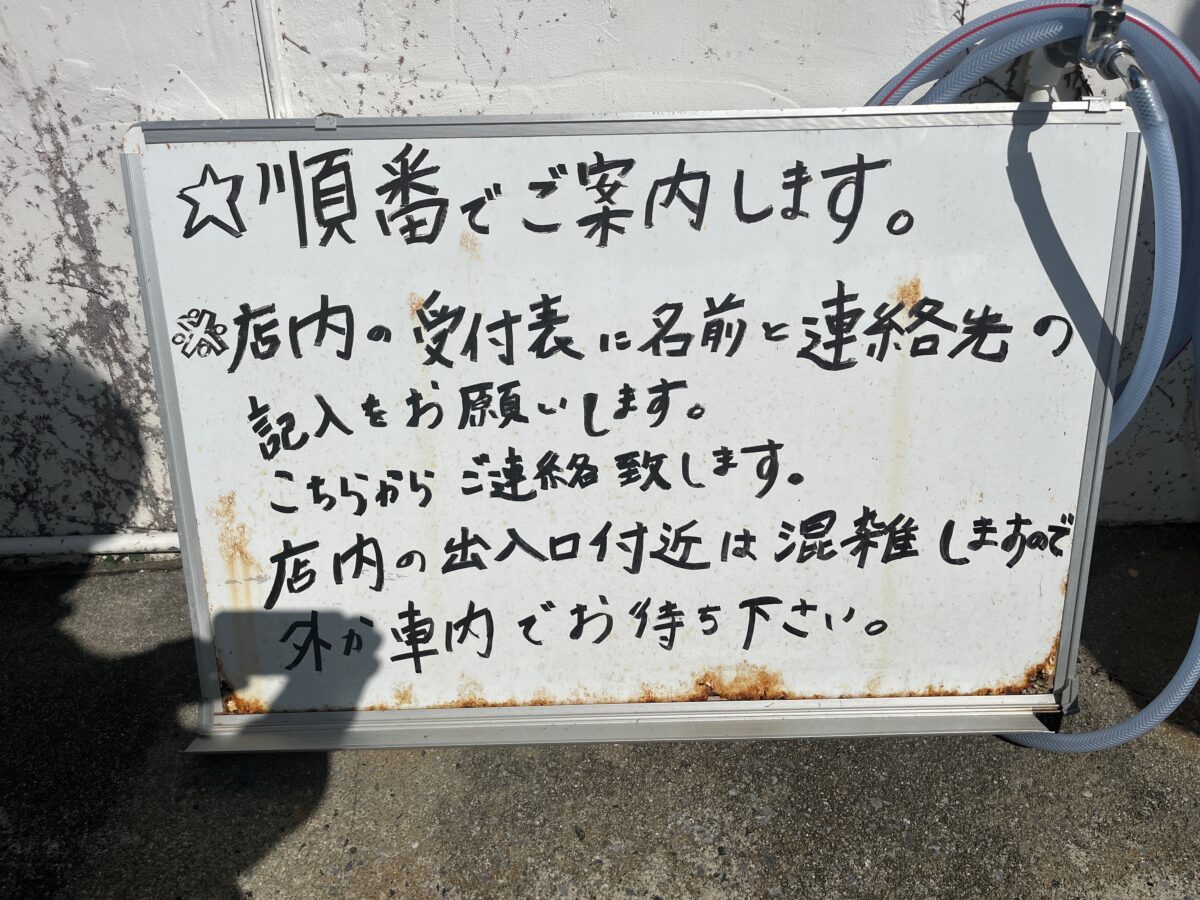 ☆順番でご案内します。
※店内の受付表に名前と連絡先の
記入をお願いします。
こちらからご連絡致します。
店内の出入口付近は混雑しますので
外か車内でお待ち下さい。